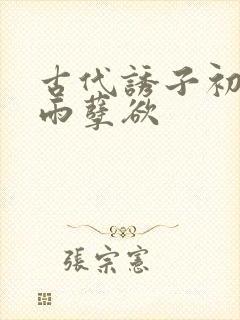 古代誘子初
雨孽欲
張宗憲